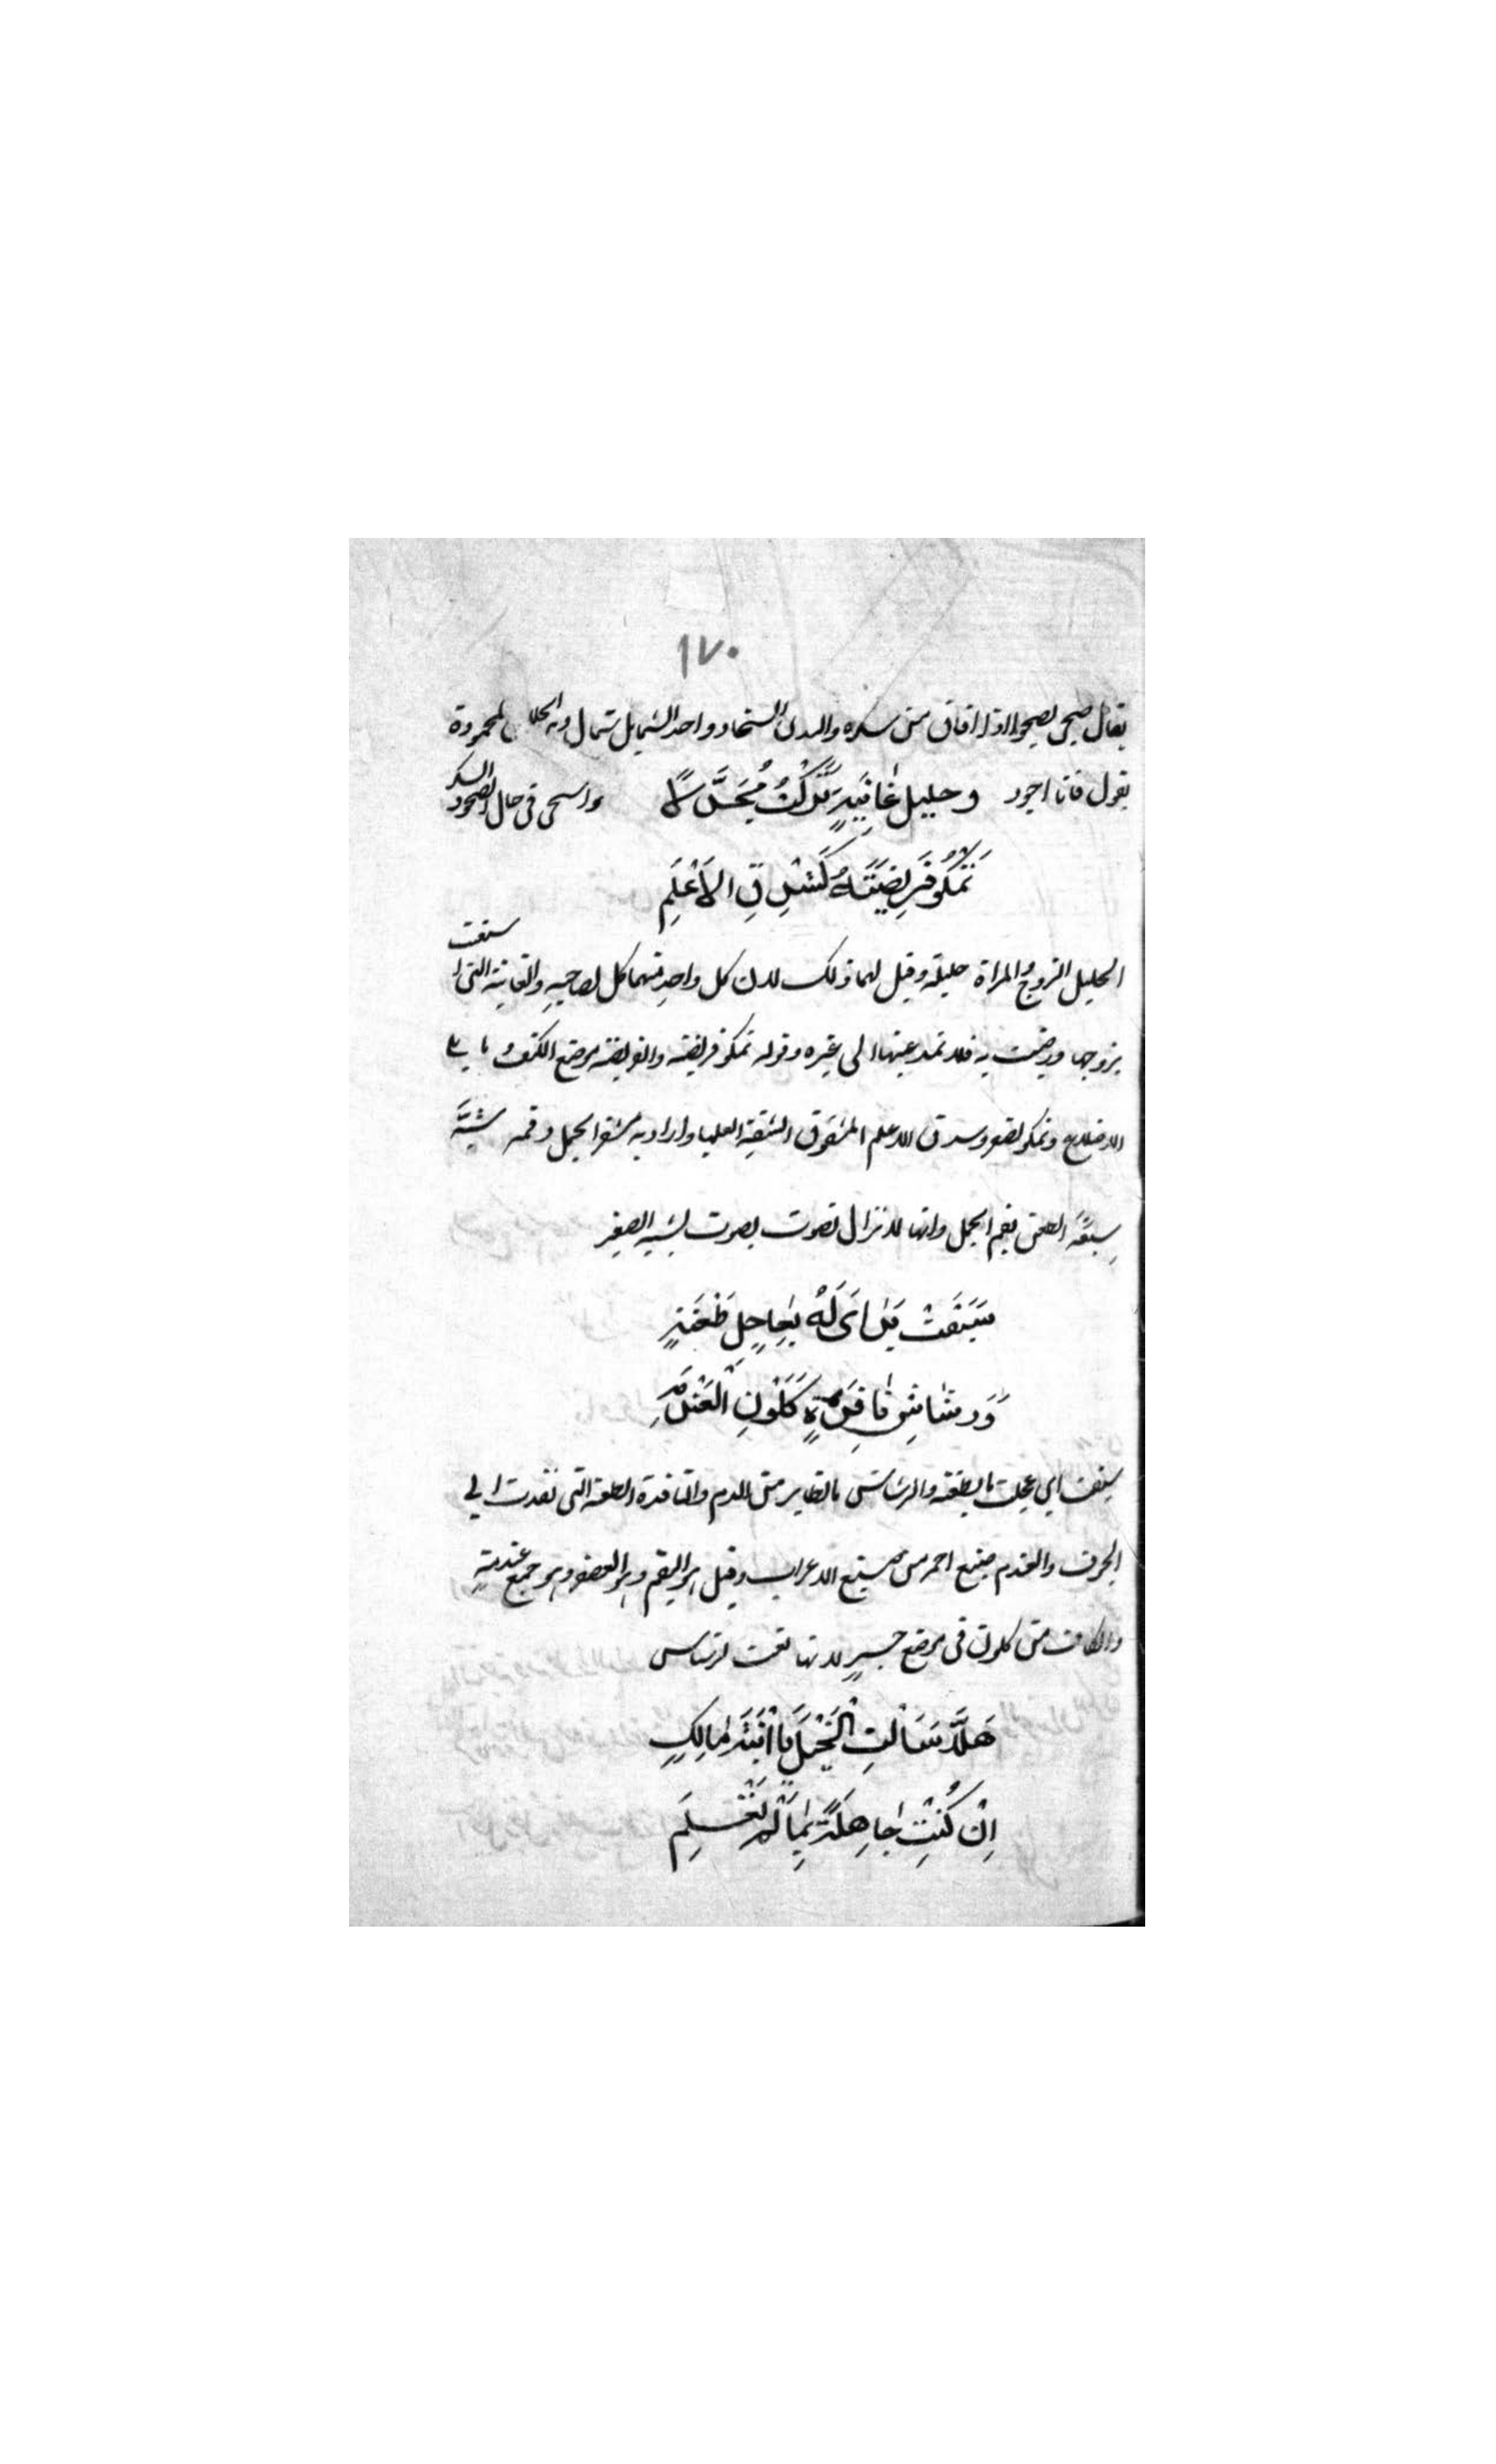 ١٧٠
يقال صحى يصحوا اذا افاق من سكره والندى السخاء وواحد الشمايل شمال وهى الخلايق المحمودة
يقول فانا اجود وحليل غانية تركت مجدلا واسخى فى حال الصحو والسكر
تمكو فريصته كشدق الاعلم
الحليل الزوج والمراة حليلة وقيل لهما ذلك لان كل واحد منهما كل لصاحبه والغانية التى استغنت
بزوجها ورضيت به فلا تمد عينها الى غيره وقوله تمكو فريصته والفريصة موضع الكتف وما يلى
الاضلاع وتمكو تصفر وشدق الاعلم المشقوق الشفة العليا واراد به مشفر الجمل وفمه شبه
سعة الطعن بفم الجمل وانها لا تزال تصوت بصوت يشبه الصفير
سبقت يداى له بعاجل طعنة
ورشاش نافذة كلون العندم
سبقت اي عجلت بالطعنة والرشاش ما تطاير من الدم والنافذة الطعنة التى نفذت الي
الجوف والعندم صبغ احمر من صبغ الاعراب وقيل هو البقم وهو العصفر وهو جمع عندمة
والكاف من كلون فى موضع جر لانها نعت لرشاش
هلا سالت الخيل يا ابنة مالك
ان كنت جاهلة بما لم تعلم